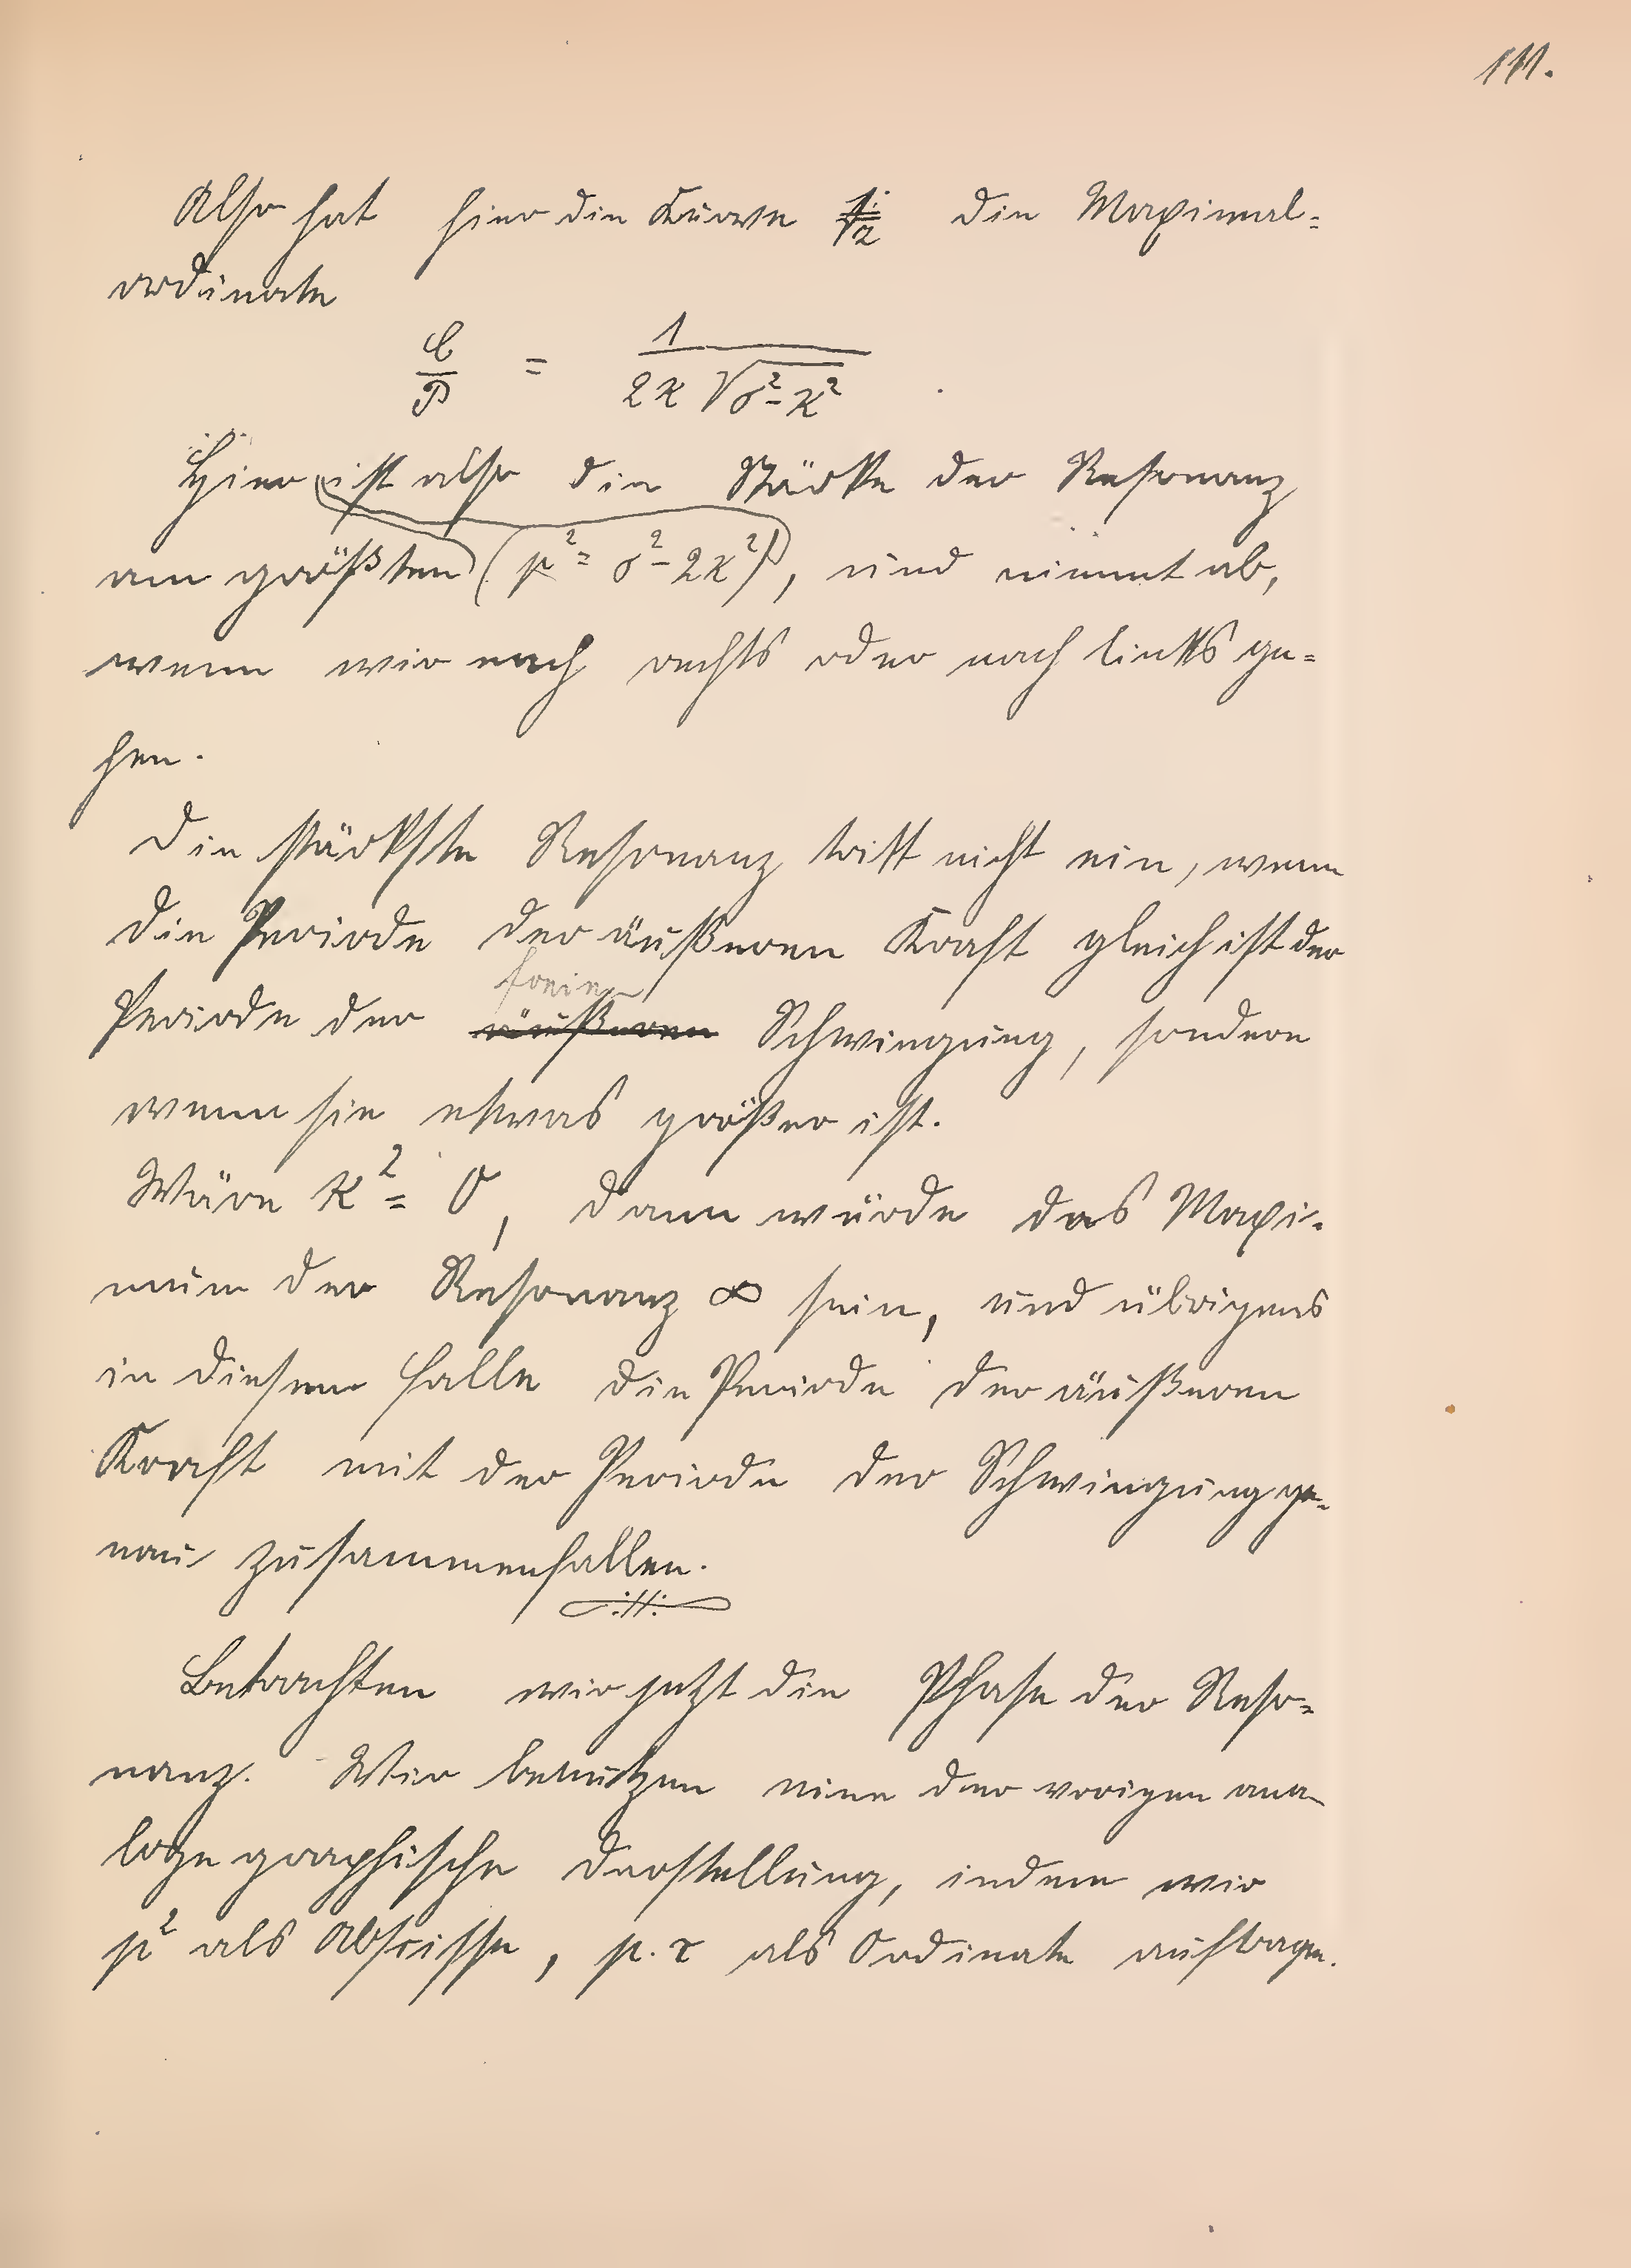 111.
Also hat hier die Kurve die Maximal-
ordinate
C/P = 1/(2κ √(σ²-κ²)) .
Hier ist also die Stärke der Resonanz
am größten (p² = σ²-2κ²), und nimmt ab,
wenn wir nach rechts oder nach links ge-
hen.
Die stärkste Resonanz tritt nicht ein, wenn
die Periode der äußeren Kraft gleich ist der
freien
Periode der äußeren Schwingung, sondern
wenn sie etwas größer ist.
Wäre κ² = 0, dann würde das Maxi-
mum der Resonanz ∞ sein, und übrigens
in diesem Falle die Periode der äußeren
Kraft mit der Periode der Schwingung ge-
nau zusammenfallen.
Betrachten wir jetzt die Phase der Reso-
nanz. Wir benutzen eine der vorigen ana-
loge graphische Darstellung, indem wir
p² als Abscisse, p.τ als Ordinate auftragen.